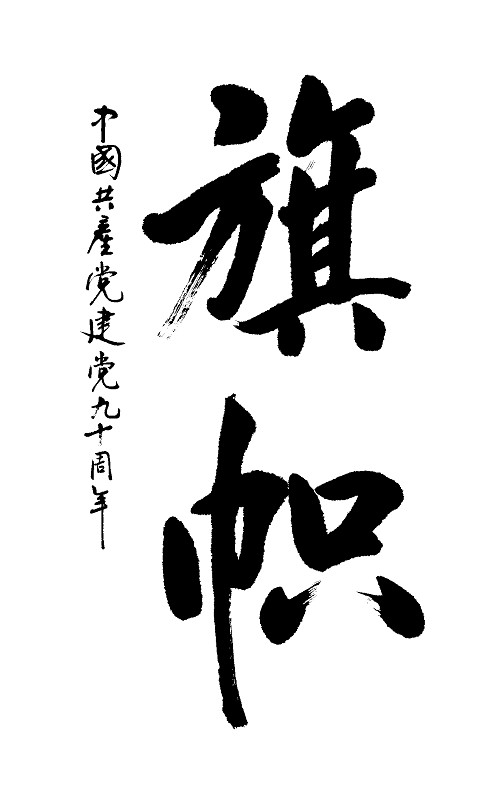 旗帜
中國共產党建党九十周年